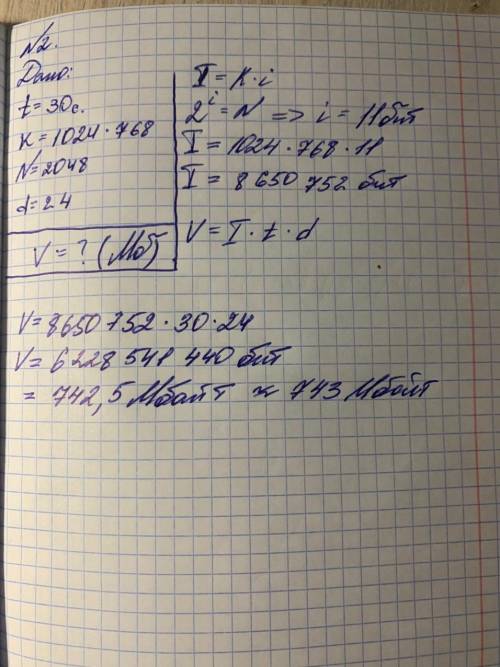 №2.
Дано:
t=30с.
K=1024·768
N=2048
d=24
V=?(Мб)
I=K·i
2^i=N => i=11бит
I=1024·768·11
I=8 650 752 бит
V=I·t·d
V=8650752·30·24
V=6228 541 440 бит
= 742,5 Мбайт ≈ 743 Мбайт